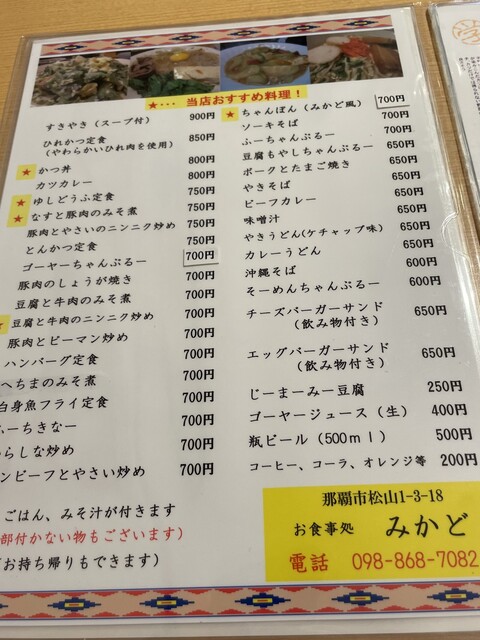 ★･･･ 当店おすすめ料理！
すきやき（スープ付） 900円
ひれかつ定食 850円
（やわらかいひれ肉を使用）
★ かつ丼 800円
カツカレー 800円
★ ゆしどうふ定食 750円
★ なすと豚肉のみそ煮 750円
豚肉とやさいのニンニク炒め 750円
とんかつ定食 750円
ゴーヤーちゃんぷるー 700円
豚肉のしょうが焼き 700円
豆腐と牛肉のみそ煮 700円
★ 豆腐と牛肉のニンニク炒め 700円
豚肉とピーマン炒め 700円
ハンバーグ定食 700円
へちまのみそ煮 700円
白身魚フライ定食 700円
ふーちきなー 700円
らしな炒め 700円
ンビーフとやさい炒め 700円
ごはん、みそ汁が付きます
部付かない物もございます）
お持ち帰りもできます）
★ ちゃんぽん（みかど風） 700円
ソーキそば 700円
ふーちゃんぷるー 700円
豆腐もやしちゃんぷるー 650円
ポークとたまご焼き 650円
やきそば 650円
ビーフカレー 650円
味噌汁 650円
やきうどん（ケチャップ味） 650円
カレーうどん 650円
沖縄そば 600円
そーめんちゃんぷるー 600円
チーズバーガーサンド 650円
（飲み物付き）
エッグバーガーサンド 650円
（飲み物付き）
じーまーみー豆腐 250円
ゴーヤージュース（生） 400円
瓶ビール（500ｍｌ） 500円
コーヒー、コーラ、オレンジ等 200円
那覇市松山1-3-18
お食事処 みかど
電話 098-868-7082